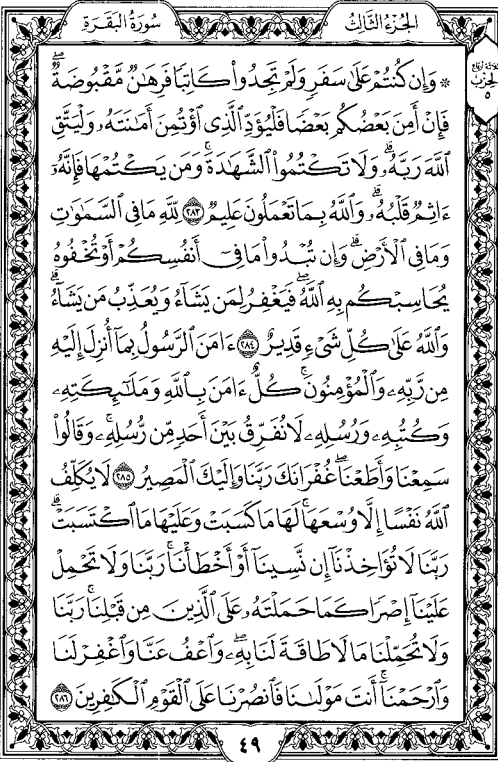 الجُزءُ الثَّالِثُ
سُورَةُ البَقَرَةِ
ثلاثة أرباع
الحزب
٥
۞ وَإِن كُنتُمْ عَلَىٰ سَفَرٍ وَلَمْ تَجِدُوا۟ كَاتِبًا فَرِهَـٰنٌ مَّقْبُوضَةٌ ۖ
فَإِنْ أَمِنَ بَعْضُكُم بَعْضًا فَلْيُؤَدِّ ٱلَّذِى ٱؤْتُمِنَ أَمَـٰنَتَهُۥ وَلْيَتَّقِ
ٱللَّهَ رَبَّهُۥ ۗ وَلَا تَكْتُمُوا۟ ٱلشَّهَـٰدَةَ ۚ وَمَن يَكْتُمْهَا فَإِنَّهُۥٓ
ءَاثِمٌ قَلْبُهُۥ ۗ وَٱللَّهُ بِمَا تَعْمَلُونَ عَلِيمٌ ٢٨٣ لِّلَّهِ مَا فِى ٱلسَّمَـٰوَٰتِ
وَمَا فِى ٱلْأَرْضِ ۗ وَإِن تُبْدُوا۟ مَا فِىٓ أَنفُسِكُمْ أَوْ تُخْفُوهُ
يُحَاسِبْكُم بِهِ ٱللَّهُ ۖ فَيَغْفِرُ لِمَن يَشَآءُ وَيُعَذِّبُ مَن يَشَآءُ ۗ
وَٱللَّهُ عَلَىٰ كُلِّ شَىْءٍ قَدِيرٌ ٢٨٤ ءَامَنَ ٱلرَّسُولُ بِمَآ أُنزِلَ إِلَيْهِ
مِن رَّبِّهِۦ وَٱلْمُؤْمِنُونَ ۚ كُلٌّ ءَامَنَ بِٱللَّهِ وَمَلَـٰٓئِكَتِهِۦ
وَكُتُبِهِۦ وَرُسُلِهِۦ لَا نُفَرِّقُ بَيْنَ أَحَدٍ مِّن رُّسُلِهِۦ ۚ وَقَالُوا۟
سَمِعْنَا وَأَطَعْنَا ۖ غُفْرَانَكَ رَبَّنَا وَإِلَيْكَ ٱلْمَصِيرُ ٢٨٥ لَا يُكَلِّفُ
ٱللَّهُ نَفْسًا إِلَّا وُسْعَهَا ۚ لَهَا مَا كَسَبَتْ وَعَلَيْهَا مَا ٱكْتَسَبَتْ ۗ
رَبَّنَا لَا تُؤَاخِذْنَآ إِن نَّسِينَآ أَوْ أَخْطَأْنَا ۚ رَبَّنَا وَلَا تَحْمِلْ
عَلَيْنَآ إِصْرًا كَمَا حَمَلْتَهُۥ عَلَى ٱلَّذِينَ مِن قَبْلِنَا ۚ رَبَّنَا
وَلَا تُحَمِّلْنَا مَا لَا طَاقَةَ لَنَا بِهِۦ ۖ وَٱعْفُ عَنَّا وَٱغْفِرْ لَنَا
وَٱرْحَمْنَآ ۚ أَنتَ مَوْلَىٰنَا فَٱنصُرْنَا عَلَى ٱلْقَوْمِ ٱلْكَـٰفِرِينَ ٢٨٦
٤٩